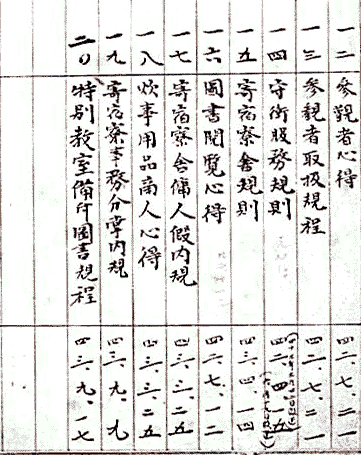 一二 参觀者心得 四二、七、二一
一三 参観者取扱規程 四二、七、二一
一四 守衛服務規則 四二、四、一五
一五 寄宿寮舎規則 四三、四、一四
一六 圖書閲覧心得 四二、七、一二
一七 寄宿寮舎傭人假内規 四三、三、二五
一八 炊事用品商人心得 四三、三、二五
一九 寄宿寮事務分掌内規 四三、九、九
二〇 特別教室備付圖書規程 四三、九、一七